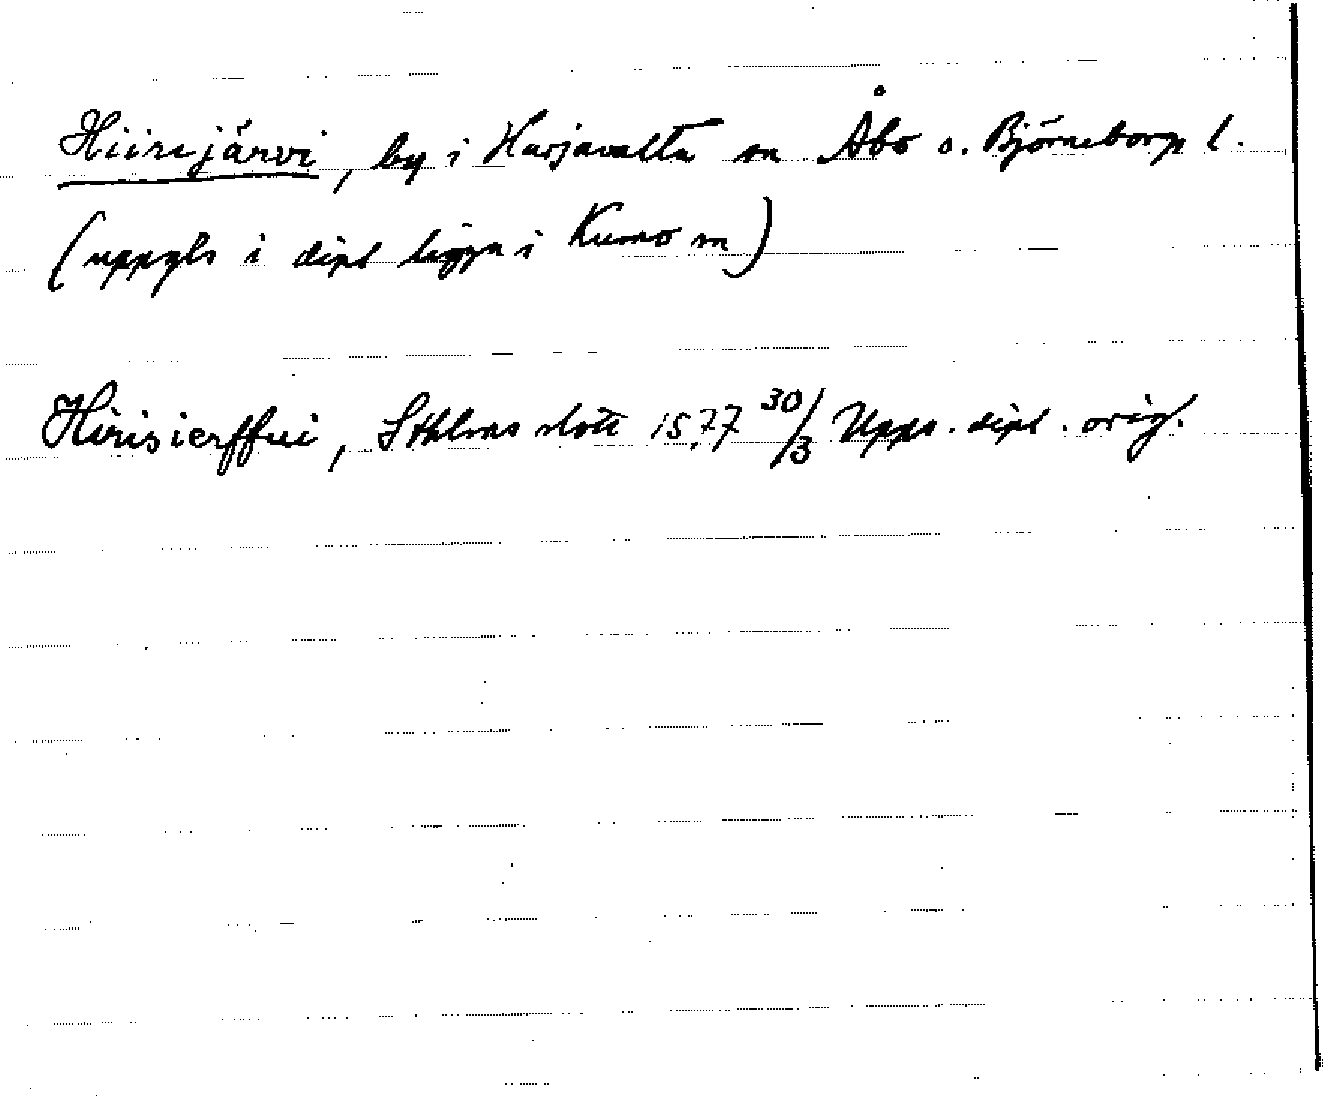 Hiirijärvi, by i Harjavalta sn Åbo o. Björneborg l.
(uppgls i dipl ligga i Kumo sn)
Hirisierffui, Sthlms slott 1577 30/3 Upps. dipl. orig.